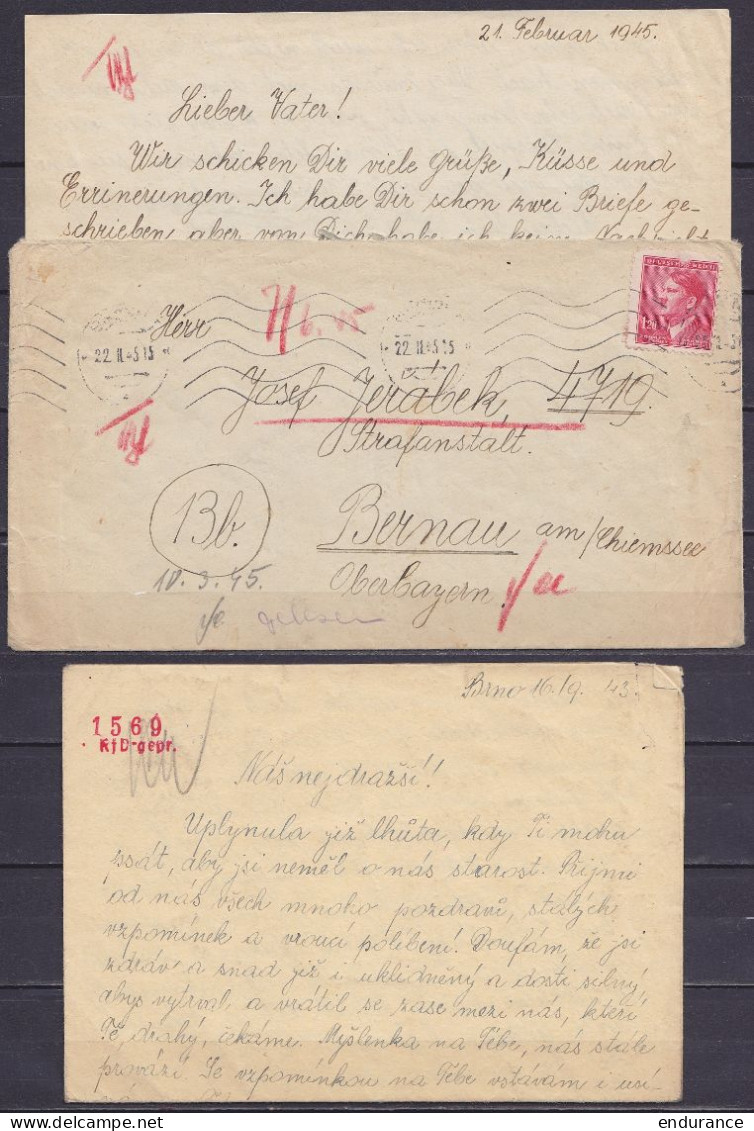 21. Februar 1945.
Lieber Vater!
Wir schicken Dir viele Grüße, Küsse und
Errinerungen. Ich habe Dir schon zwei Briefe ge-
schrieben, aber von Dich habe ich keine Nachricht
Herr
22. II. 45. 15
22. II. 45. 15
1.20
Josef Jeřábek, 4719.
Strafanstalt.
13b.
Bernau am/Chiemssee
Oberbayern.
10.3.45.
gelesen
Brno 16./9. 43.
1569
KfD-gepr.
Náš nejdražší!
Uplynula již lhůta, kdy Ti mohu
psát, aby jsi neměl o nás starost. Přijmi
od nás všech mnoko pozdravů, stálých
vzpomínek a vroucí políbení. Doufám, že jsi
zdráv a snad již i uklidněný a dosti silný,
abys vytrval a vrátil se zase mezi nás, kteří
Tě, drahý, čekáme. Myšlenka na Tebe, nás stále
provází. Se vzpomínkou na Tebe vstávám i usí-
endurance